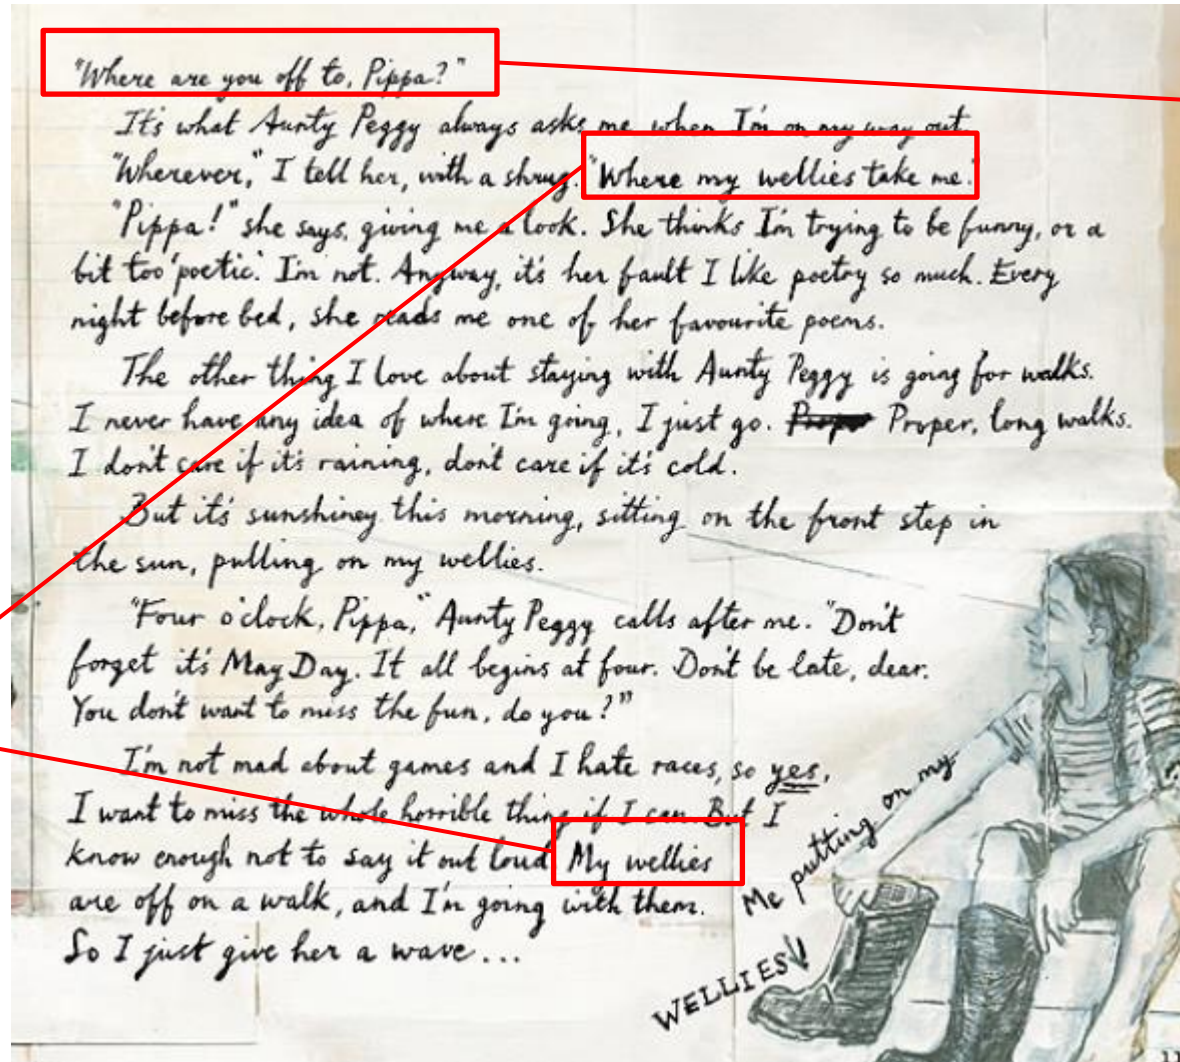 "Where are you off to, Pippa?"
It's what Aunty Peggy always asks me when I'm on my way out.
"Wherever," I tell her, with a shrug. "Where my wellies take me."
"Pippa!" she says, giving me a look. She thinks I'm trying to be funny, or a
bit too 'poetic'. I'm not. Anyway, it's her fault I like poetry so much. Every
night before bed, she reads me one of her favourite poems.
The other thing I love about staying with Aunty Peggy is going for walks.
I never have any idea of where I'm going, I just go. Proper, long walks.
I don't care if it's raining, don't care if it's cold.
But it's sunshiney this morning, sitting on the front step in
the sun, pulling on my wellies.
"Four o'clock, Pippa," Aunty Peggy calls after me. "Don't
forget it's May Day. It all begins at four. Don't be late, dear.
You don't want to miss the fun, do you?"
I'm not mad about games and I hate races, so yes,
I want to miss the whole horrible thing if I can. But I
know enough not to say it out loud. My wellies
are off on a walk, and I'm going with them.
So I just give her a wave...
Me putting on my
WELLIES
11